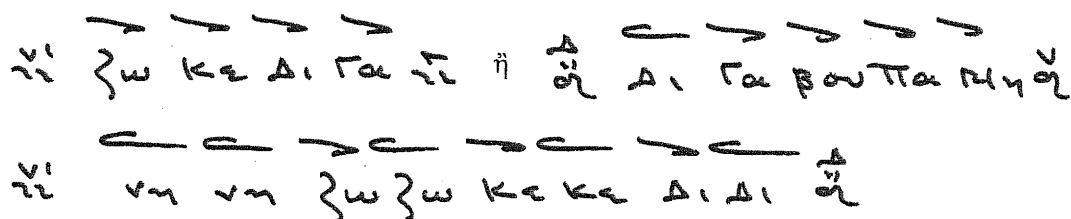 ζω κε Δι Γα ἤ Δι Γα βου Πα Νη
νη νη ζω ζω κε κε Δι Δι